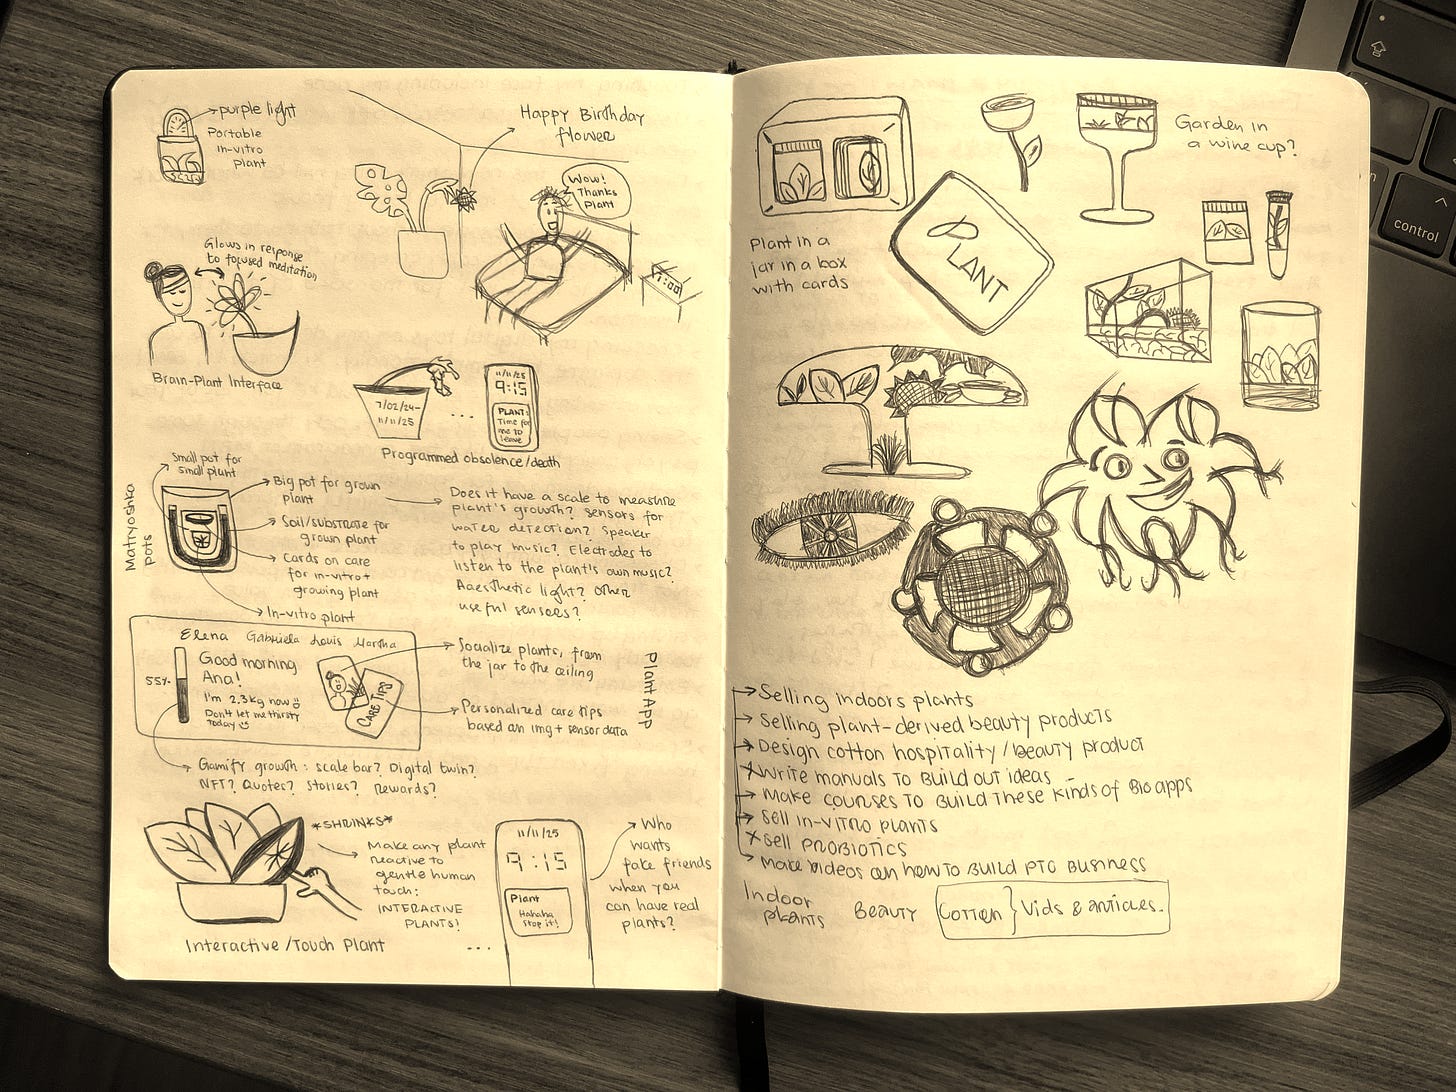 purple light
Portable
in-vitro
plant
Happy Birthday
flower
Wow!
Thanks
Plant
7:00
Glows in response
to focused meditation
Brain-Plant Interface
7/02/24-
11/11/25
...
11/11/25
9:15
PLANT:
Time for
me to
leave
Programmed obsolence/death
Matryoshka
Pots
Small pot for
small plant
Big pot for grown
plant
Soil/substrate for
grown plant
Cards on care
for in-vitro+
growing plant
In-vitro plant
Does it have a scale to measure
plant's growth? sensors for
water detection? Speaker
to play music? Electrodes to
listen to the plant's own music?
Aaesthetic light? Other
useful sensors?
Elena Gabriela Louis Martha
55%
Good morning
Ana!
I'm 2,3kg now
Don't let me thirsty
today
CARE TIPS
Socialize plants, from
the jar to the ceiling
Personalized care tips
based on img + sensor data
Plant APP
Gamify growth: scale bar? Digital twin?
NFT? Quotes? Stories? Rewards?
*SHRINKS*
Make any plant
reactive to
gentle human
touch:
INTERACTIVE
PLANTS!
Interactive/Touch Plant
...
11/11/25
9:15
Plant
Hahaha
Stop it!
Who
wants
fake friends
when you
can have real
plants?
Garden in
a wine cup?
Plant in a
jar in a box
with cards
PLANT
Selling indoors plants
Selling plant-derived beauty products
Design cotton hospitality/beauty product
Write manuals To Build out ideas
Make courses To Build These kinds of Bio apps
Sell in-vitro plants
Sell PROBIOTICS
Make videos on how To Build PTC Business
Indoor
plants
Beauty
Cotton } Vids & articles.
control